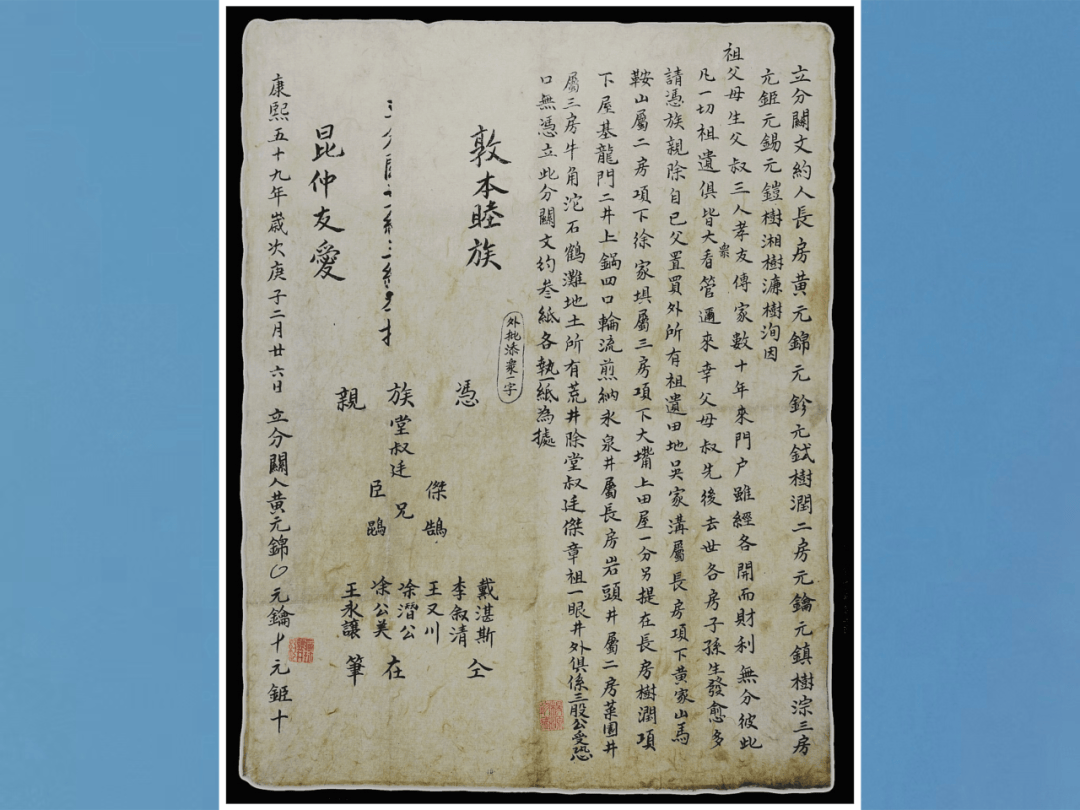 立分關文約人長房黃元錦元鉁元鉽樹潤二房元鑰元鎮樹淙三房
元鉅元錫元鎧樹湘樹濂樹洵因
祖父母生父叔三人孝友傳家數十年來門户雖經各開而財利無分彼此
凡一切祖遺俱皆大衆看管邇來幸父母叔先後去世各房子孫生發愈多
請憑族親除自已父置買外所有祖遺田地吳家溝屬長房項下黃家山馬
鞍山屬二房項下徐家埧屬三房項下大墝上田屋一分另提在長房樹潤項
下屋基龍門二井上鍋四口輪流煎納永泉井屬長房岩頭井屬二房菜園井
屬三房牛角沱石鶴灘地土所有荒井除堂叔廷傑章祖一眼井外俱係三股公受恐
口無憑立此分關文約叁紙各執一紙為據
外批添衆一字
敦本睦族
憑
族堂叔廷傑
兄鵠
臣鵾
親
戴湛斯
李叙清
王又川
凃潛公
凃公美
王永讓筆
仝
在
昆仲友愛
康熙五十九年歲次庚子二月廿六日立分關人黃元錦〇元鑰十元鉅十